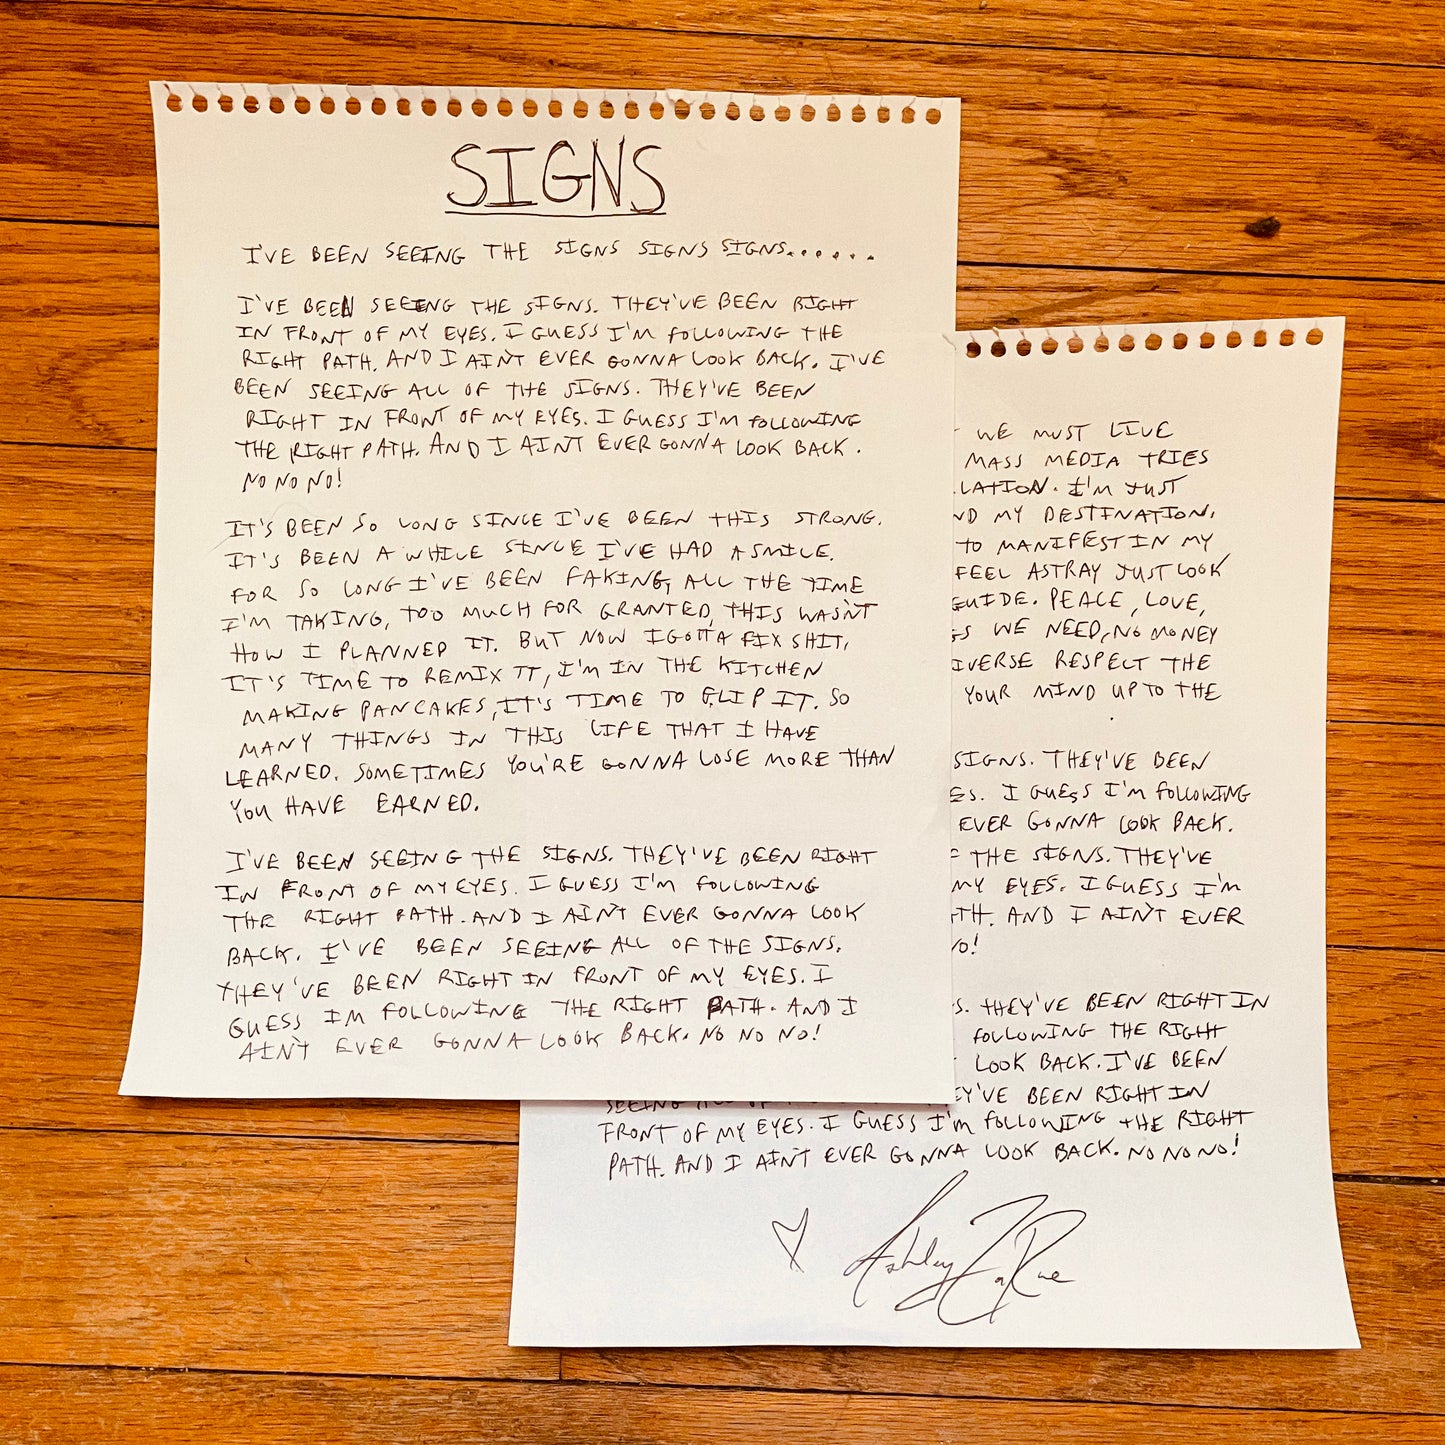 SIGNS
I'VE BEEN SEEING THE SIGNS SIGNS SIGNS......
I'VE BEEN SEEING THE SIGNS. THEY'VE BEEN RIGHT
IN FRONT OF MY EYES. I GUESS I'M FOLLOWING THE
RIGHT PATH. AND I AIN'T EVER GONNA LOOK BACK. I'VE
BEEN SEEING ALL OF THE SIGNS. THEY'VE BEEN
RIGHT IN FRONT OF MY EYES. I GUESS I'M FOLLOWING
THE RIGHT PATH. AND I AIN'T EVER GONNA LOOK BACK.
NO NO NO!
IT'S BEEN SO LONG SINCE I'VE BEEN THIS STRONG.
IT'S BEEN A WHILE SINCE I'VE HAD A SMILE.
FOR SO LONG I'VE BEEN FAKING, ALL THE TIME
I'M TAKING, TOO MUCH FOR GRANTED, THIS WASN'T
HOW I PLANNED IT. BUT NOW I GOTTA FIX SHIT,
IT'S TIME TO REMIX IT, I'M IN THE KITCHEN
MAKING PANCAKES, IT'S TIME TO FLIP IT. SO
MANY THINGS IN THIS LIFE THAT I HAVE
LEARNED. SOMETIMES YOU'RE GONNA LOSE MORE THAN
YOU HAVE EARNED.
I'VE BEEN SEEING THE SIGNS. THEY'VE BEEN RIGHT
IN FRONT OF MY EYES. I GUESS I'M FOLLOWING
THE RIGHT PATH. AND I AIN'T EVER GONNA LOOK
BACK. I'VE BEEN SEEING ALL OF THE SIGNS.
THEY'VE BEEN RIGHT IN FRONT OF MY EYES. I
GUESS IM FOLLOWING THE RIGHT PATH. AND I
AIN'T EVER GONNA LOOK BACK. NO NO NO!
WE MUST LIVE
MASS MEDIA TRIES
LATION. I'M JUST
ND MY DESTINATION.
TO MANIFEST IN MY
FEEL ASTRAY JUST LOOK
GUIDE. PEACE, LOVE,
GS WE NEED, NO MONEY
IVERSE RESPECT THE
YOUR MIND UP TO THE
SIGNS. THEY'VE BEEN
ES. I GUESS I'M FOLLOWING
EVER GONNA LOOK BACK.
F THE SIGNS. THEY'VE
MY EYES. I GUESS I'M
TH. AND I AIN'T EVER
NO!
S. THEY'VE BEEN RIGHT IN
FOLLOWING THE RIGHT
LOOK BACK. I'VE BEEN
SEEING ALL OF EY'VE BEEN RIGHT IN
FRONT OF MY EYES. I GUESS I'M FOLLOWING THE RIGHT
PATH. AND I AIN'T EVER GONNA LOOK BACK. NO NO NO!
Ashley LaRue